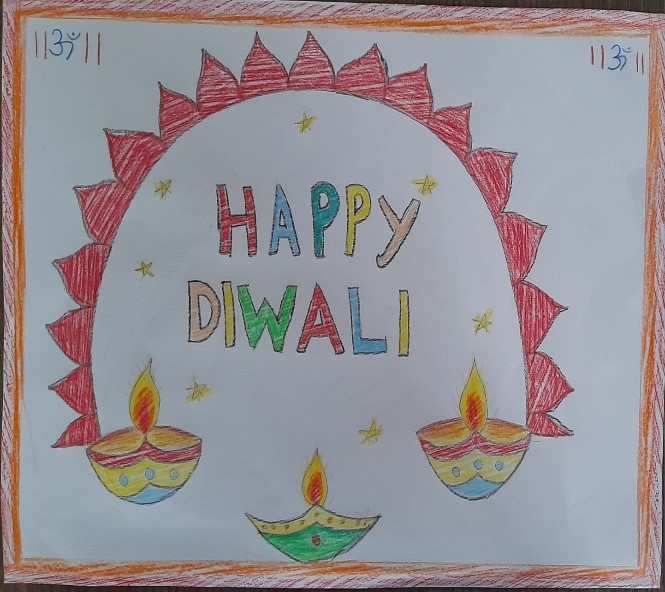 ||ॐ|| ||ॐ||
HAPPY
DIWALI